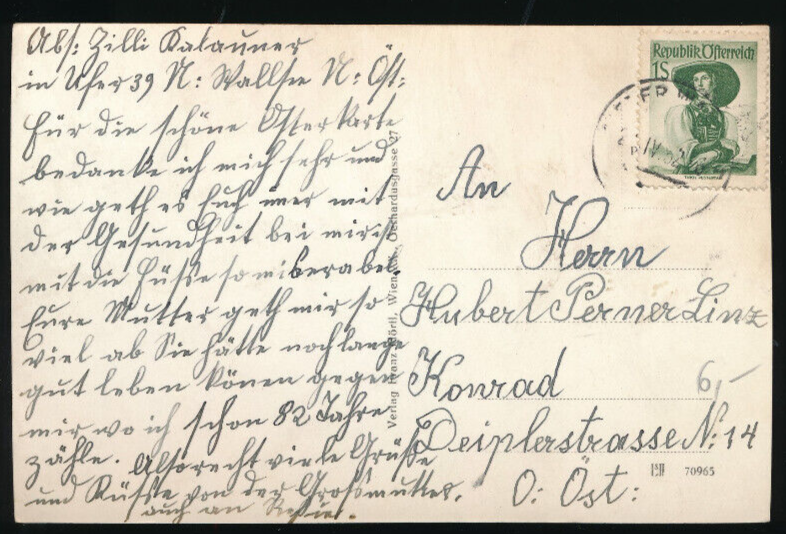 Abs: Zilli Kalauner
in Ufer 39 N: Wallsee N: Öst:
Für die schöne Osterkarte
bedanke ich mich sehr und
wie geth es Euch imer mit
der Gesundheit bei mir ist
mit die Füsse so miserabel.
Eure Mutter geth mir so
viel ab Sie hätte noch lange
gut leben könen gegen
mir wo ich schon 82 Jahre
zähle. Also recht viele Grüße
und Küsse von der Grossmutter.
auch an
Verlag Franz Mörtl, Wien, Gerhardusgasse 27
Republik Österreich
1S
IV
An
Herrn
Hubert Perner Linz
Konrad
Deiplerstrasse N: 14
O: Öst:
6,-
70965